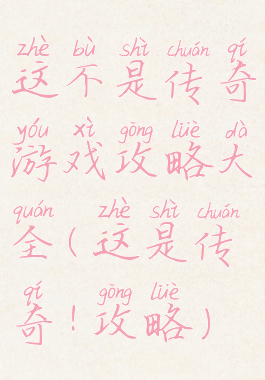 zhè bù shì chuán qí
这不是传奇
yóu xì gōng lüè dà
游戏攻略大
quán zhè shì chuán
全(这是传
qí gōng lüè
奇!攻略)